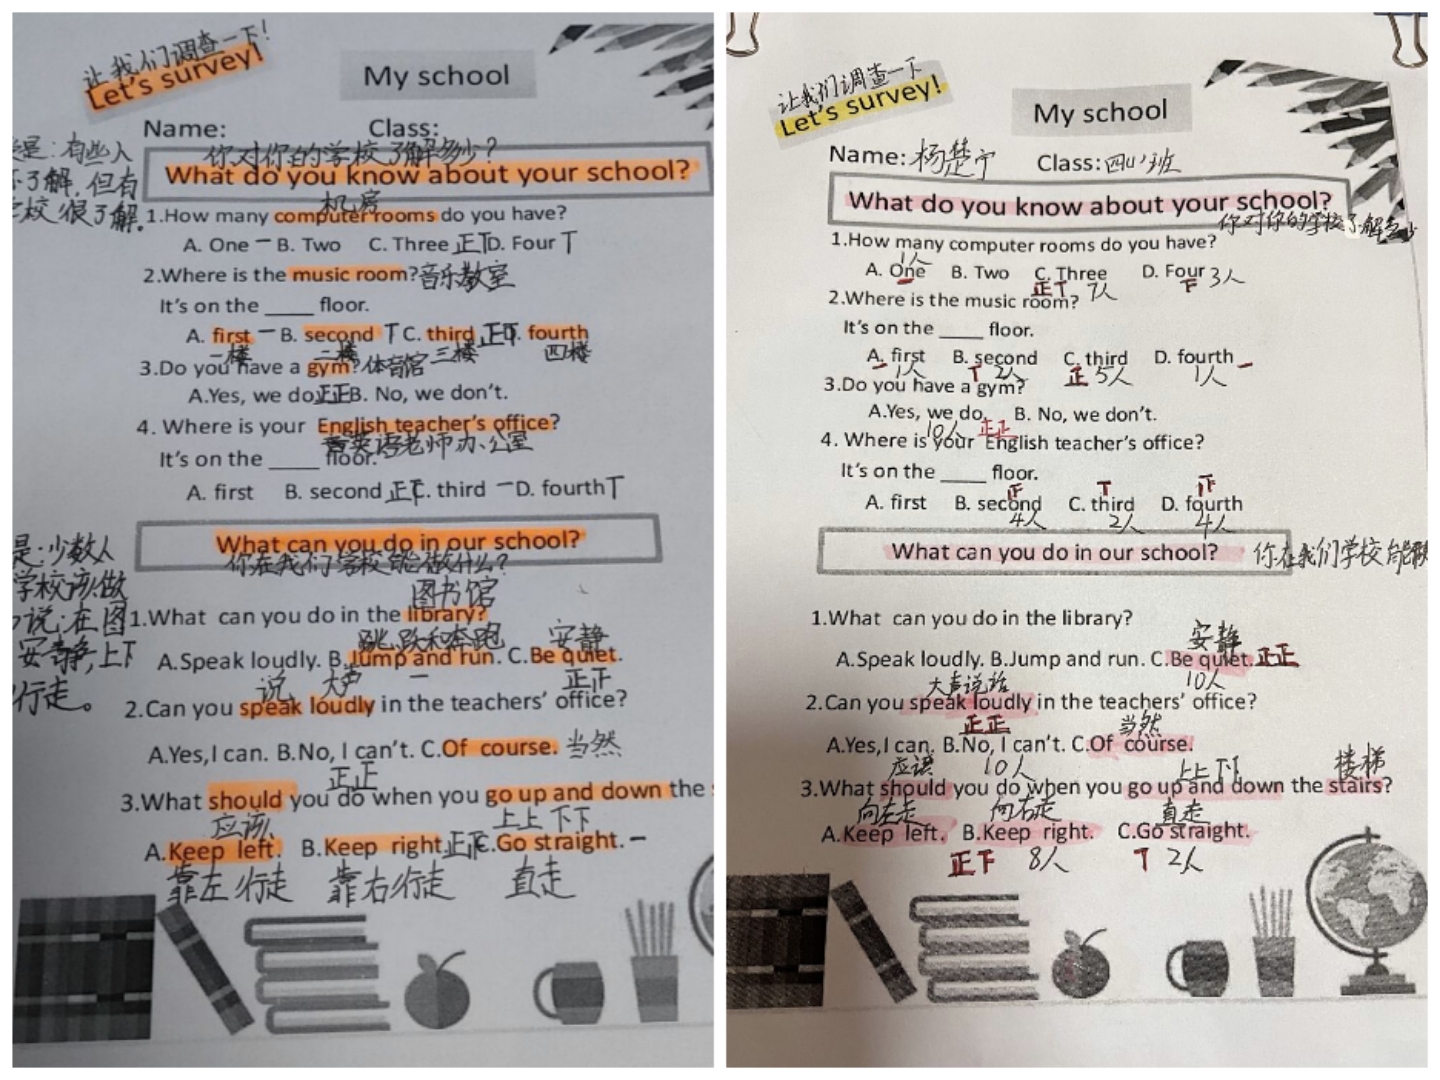 让我们调查一下!
Let's survey!
My school
Name:
Class:
你对你的学校了解多少?
What do you know about your school?
是:有些人
不了解,但有
学校很了解。
机房
1.How many computer rooms do you have?
A. One 一 B. Two C. Three 正丅 D. Four 丅
2.Where is the music room? 音乐教室
It's on the ____ floor.
A. first 一 B. second 丅 C. third 正丅 D. fourth
一楼 二楼 三楼 四楼
3.Do you have a gym? 体育馆
A.Yes, we do 正正 B. No, we don't.
4. Where is your English teacher's office?
英语老师办公室
It's on the ____ floor.
A. first B. second 正丅 C. third 一 D. fourth 丅
What can you do in our school?
你在我们学校能做什么?
是:少数人
学校该做
说:在图
安静,上下
行走。
图书馆
1.What can you do in the library?
跳跃和奔跑 安静
A.Speak loudly. B.Jump and run. C.Be quiet.
一 正正
说 大声
2.Can you speak loudly in the teachers' office?
A.Yes,I can. B.No, I can't. C.Of course. 当然
正正
3.What should you do when you go up and down the
应该 上上下下
A.Keep left. B.Keep right. 正下 C.Go straight. 一
靠左行走 靠右行走 直走
让我们调查一下
Let's survey!
My school
Name: 杨楚宁 Class: 四(1)班
What do you know about your school?
你对你的学校了解多少
1.How many computer rooms do you have?
1人
A. One B. Two C. Three D. Four 3人
一 正丅 7人 下
2.Where is the music room?
It's on the ____ floor.
A. first B. second C. third D. fourth
一 1人 丅 2人 正 5人 1人 一
3.Do you have a gym?
A.Yes, we do. B. No, we don't.
10人 正正
4. Where is your English teacher's office?
It's on the ____ floor.
A. first B. second C. third D. fourth
4人 丅 2人 4人
What can you do in our school? 你在我们学校能
1.What can you do in the library?
安静
A.Speak loudly. B.Jump and run. C.Be quiet. 正正
10人
大声说话
2.Can you speak loudly in the teachers' office?
正正 当然
A.Yes,I can. B.No, I can't. C.Of course.
应该 10人 上上下下 楼梯
3.What should you do when you go up and down the stairs?
向左走 向右走 直走
A.Keep left. B.Keep right. C.Go straight.
正下 8人 丅 2人